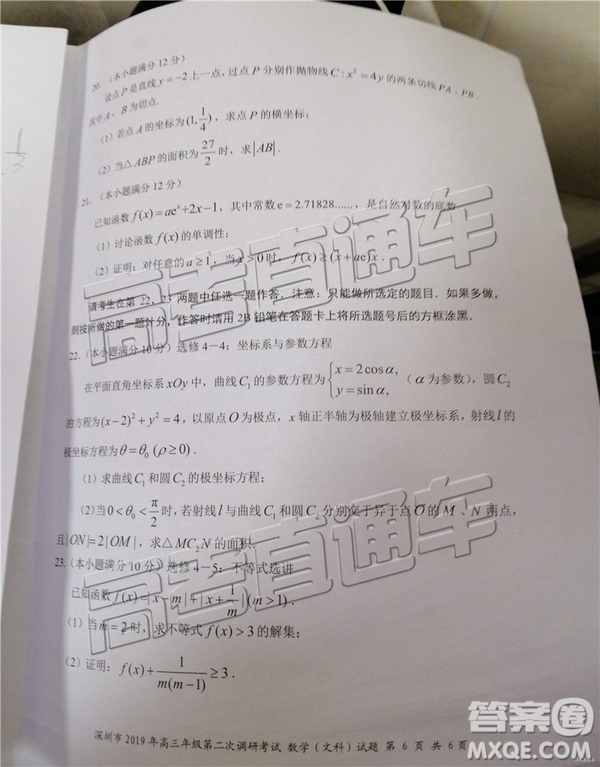 20. (本小题满分 12 分)
设点 P 是直线 y=−2 上一点, 过点 P 分别作抛物线 C: x²=4y 的两条切线 PA、PB,
其中 A、B 为切点.
(1) 若点 A 的坐标为(1, 1/4), 求点 P 的横坐标;
(2) 当△ABP 的面积为 27/2 时, 求|AB|.
21. (本小题满分 12 分)
已知函数 f(x)=ae^x+2x−1, 其中常数 e=2.71828……, 是自然对数的底数
(1) 讨论函数 f(x) 的单调性;
(2) 证明: 对任意的 a≥1, 当 x>0 时, f(x)≥(x+ae)x.
请考生在第 22、23 两题中任选一题作答, 注意: 只能做所选定的题目. 如果多做,
则按所做的第一题计分, 作答时请用 2B 铅笔在答题卡上将所选题号后的方框涂黑.
22. (本小题满分 10 分) 选修 4−4: 坐标系与参数方程
在平面直角坐标系 xOy 中, 曲线 C₁ 的参数方程为 { x=2cosα, y=sinα, (α为参数), 圆 C₂
的方程为 (x−2)²+y²=4, 以原点 O 为极点, x 轴正半轴为极轴建立极坐标系, 射线 l 的
极坐标方程为 θ=θ₀ (ρ≥0).
(1) 求曲线 C₁ 和圆 C₂ 的极坐标方程;
(2) 当 0<θ₀<π/2 时, 若射线 l 与曲线 C₁ 和圆 C₂ 分别交于异于点 O 的 M、N 两点,
且|ON|=2|OM|, 求△MC₂N 的面积.
23. (本小题满分 10 分) 选修 4−5: 不等式选讲
已知函数 f(x)=|x−m|+|x+1/m|(m>1).
(1) 当 m=2 时, 求不等式 f(x)>3 的解集;
(2) 证明: f(x)+1/(m(m−1))≥3.
深圳市 2019 年高三年级第二次调研考试 数学 (文科) 试题 第 6 页 共 6 页
高考直通车
高考直通车
高考直通车
答案圈
MXQE.COM